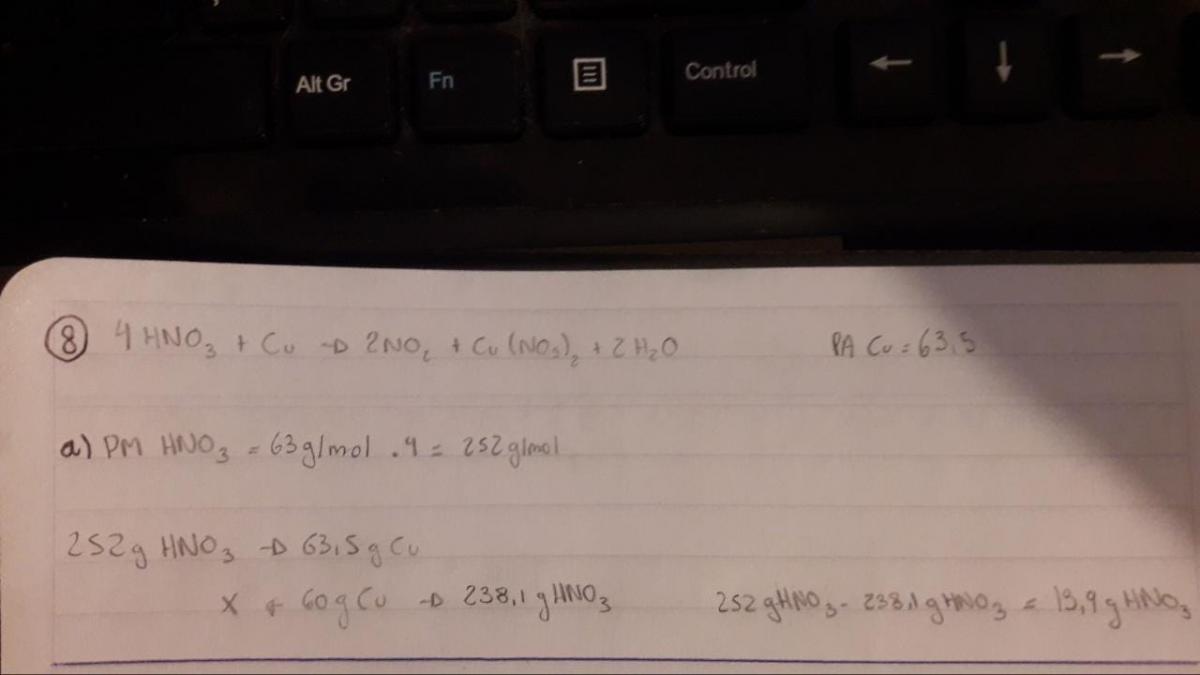 Alt Gr Fn Control ← ↓ →
8 4 HNO₃ + Cu → 2NO₂ + Cu(NO₃)₂ + 2H₂O PA Cu = 63,5
a) PM HNO₃ = 63g/mol . 4 = 252g/mol
252g HNO₃ → 63,5g Cu
X ← 60g Cu → 238,1 g HNO₃ 252 gHNO₃ - 238,1 g HNO₃ = 13,9 g HNO₃